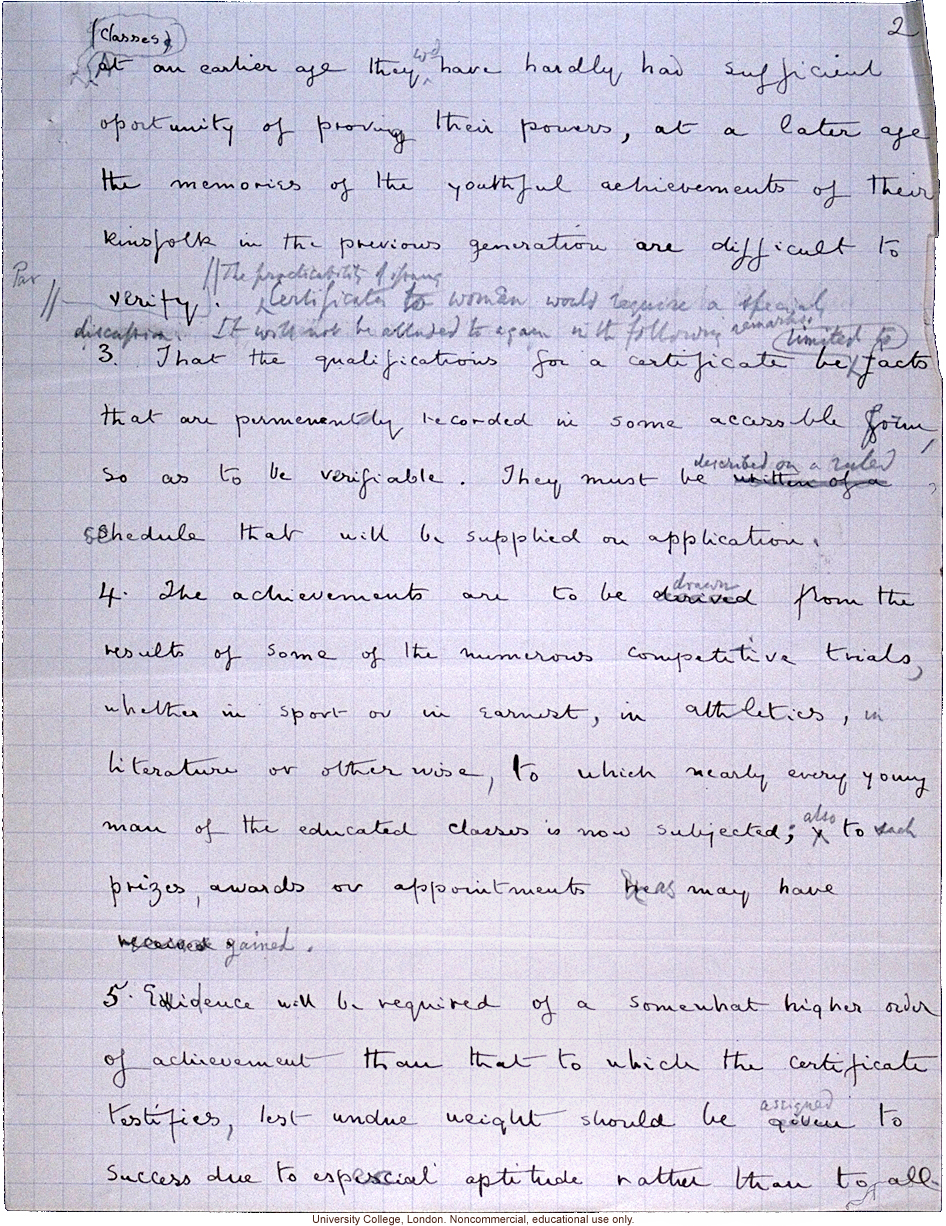 2
(Classes)
At an earlier age they wd have hardly had sufficient
oportunity of proving their powers, at a later age
the memories of the youthful achievements of their
kinsfolk in the previous generation are difficult to
Par // // The practicability of giving
verify. Certificates to women would require a special
discussion. It will not be alluded to again in the following remarks.
limited to
3. That the qualifications for a certificate be facts
that are permenently recorded in some accessible form,
described on a ruled
so as to be verifiable. They must be written of a
schedule that will be supplied on application.
drawn
4. The achievements are to be derived from the
results of some of the numerous competitive trials,
whether in sport or in earnest, in athletics, in
literature or otherwise, to which nearly every young
man of the educated classes is now subjected; also to such
prizes, awards or appointments as may have
received gained.
5. Evidence will be required of a somewhat higher order
of achievement than that to which the certificate
assigned
testifies, lest undue weight should be given to
success due to especial aptitude rather than to all-
University College, London. Noncommercial, educational use only.